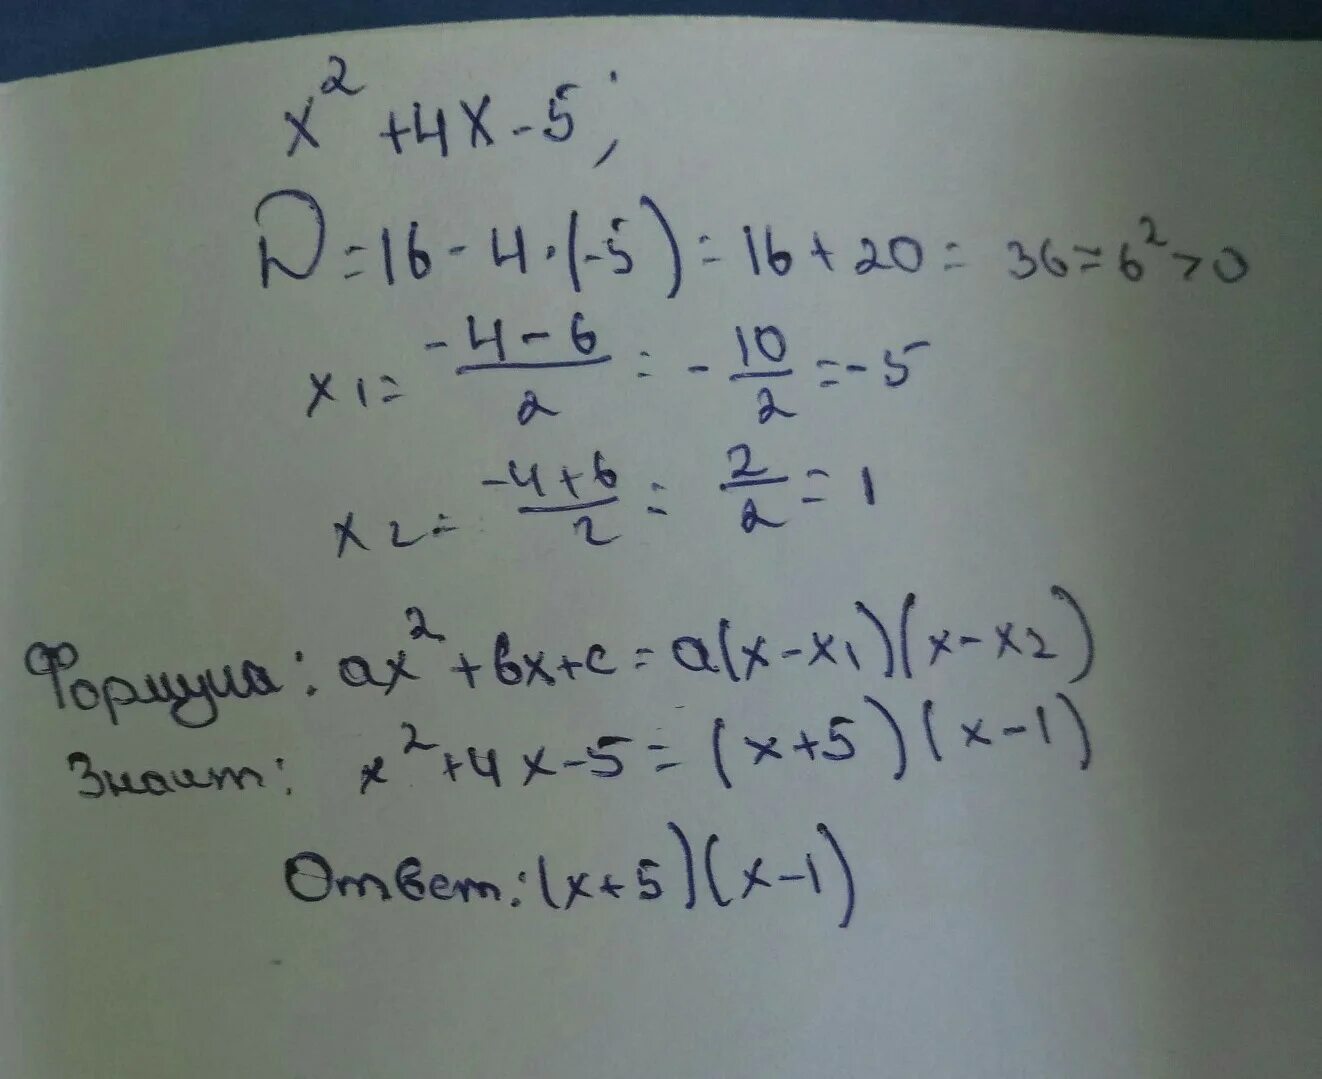 x² + 4x - 5;
D = 16 - 4 · (-5) = 16 + 20 = 36 = 6² > 0
x1 = (-4 - 6)/2 = -10/2 = -5
x2 = (-4 + 6)/2 = 2/2 = 1
Формула: ax² + bx + c = a(x - x1)(x - x2)
Значит: x² + 4x - 5 = (x + 5)(x - 1)
Ответ: (x + 5)(x - 1)